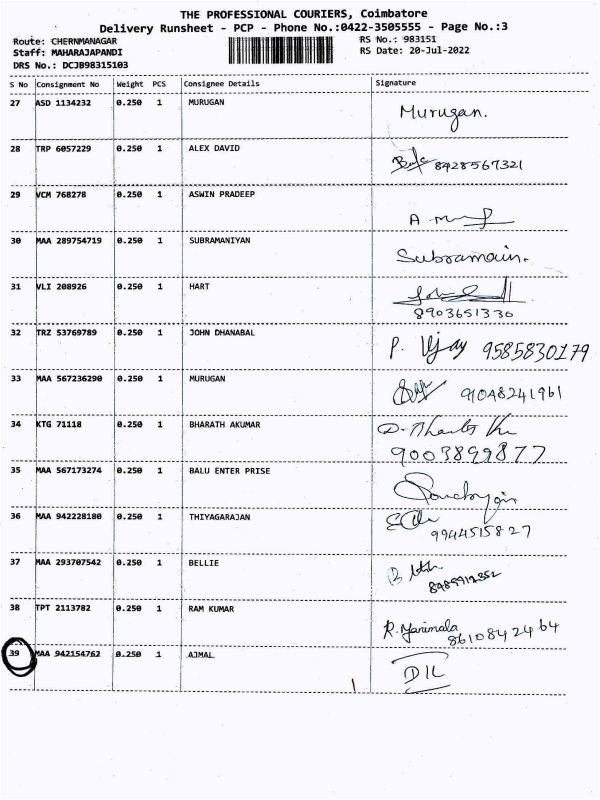 THE PROFESSIONAL COURIERS, Coimbatore
Delivery Runsheet - PCP - Phone No.:0422-3505555 - Page No.:3
Route: CHERNMANAGAR
RS No.: 983151
Staff: MAHARAJAPANDI
RS Date: 20-Jul-2022
DRS No.: DCJB98315103
S No Consignment No Weight PCS Consignee Details Signature
27 ASD 1134232 0.250 1 MURUGAN Murugan.
28 TRP 6057229 0.250 1 ALEX DAVID 8428567321
29 VCM 768278 0.250 1 ASWIN PRADEEP A
30 MAA 289754719 0.250 1 SUBRAMANIYAN Subramain.
31 VLI 208926 0.250 1 HART
8903651330
32 TRZ 53769789 0.250 1 JOHN DHANABAL P. Vijay 9585830179
33 MAA 567236290 0.250 1 MURUGAN 91048241961
34 KTG 71118 0.250 1 BHARATH AKUMAR
9003899877
35 MAA 567173274 0.250 1 BALU ENTER PRISE
36 MAA 942228180 0.250 1 THIYAGARAJAN
9944515827
37 MAA 293707542 0.250 1 BELLIE
8489912352
38 TPT 2113782 0.250 1 RAM KUMAR R. Manimala
8610842464
39 MAA 942154762 0.250 1 AJMAL DIL